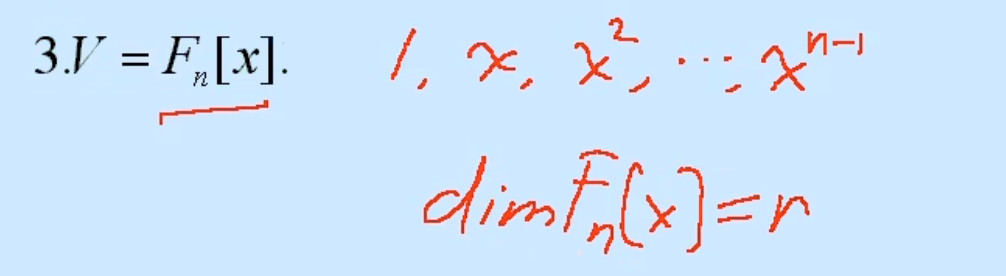 3.V = Fₙ[x]. 1, x, x², ..., xⁿ⁻¹
dimFₙ[x]=n